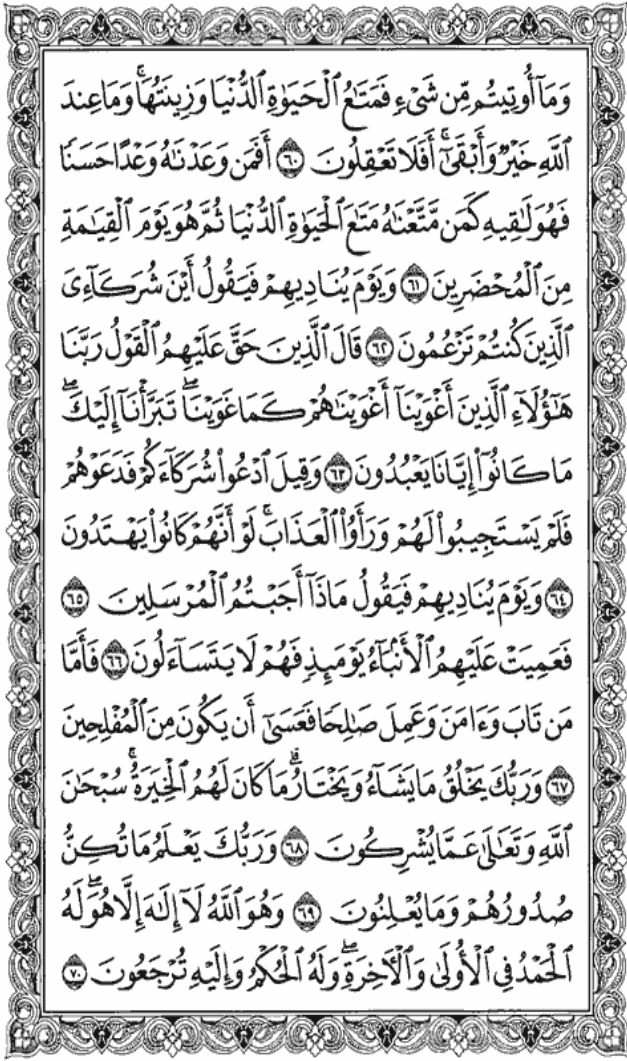 وَمَآ أُوتِيتُم مِّن شَىْءٍ فَمَتَـٰعُ ٱلْحَيَوٰةِ ٱلدُّنْيَا وَزِينَتُهَا ۚ وَمَا عِندَ
ٱللَّهِ خَيْرٌ وَأَبْقَىٰٓ ۚ أَفَلَا تَعْقِلُونَ ٦٠ أَفَمَن وَعَدْنَـٰهُ وَعْدًا حَسَنًا
فَهُوَ لَـٰقِيهِ كَمَن مَّتَّعْنَـٰهُ مَتَـٰعَ ٱلْحَيَوٰةِ ٱلدُّنْيَا ثُمَّ هُوَ يَوْمَ ٱلْقِيَـٰمَةِ
مِنَ ٱلْمُحْضَرِينَ ٦١ وَيَوْمَ يُنَادِيهِمْ فَيَقُولُ أَيْنَ شُرَكَآءِىَ
ٱلَّذِينَ كُنتُمْ تَزْعُمُونَ ٦٢ قَالَ ٱلَّذِينَ حَقَّ عَلَيْهِمُ ٱلْقَوْلُ رَبَّنَا
هَـٰٓؤُلَآءِ ٱلَّذِينَ أَغْوَيْنَآ أَغْوَيْنَـٰهُمْ كَمَا غَوَيْنَا ۖ تَبَرَّأْنَآ إِلَيْكَ ۖ
مَا كَانُوٓا۟ إِيَّانَا يَعْبُدُونَ ٦٣ وَقِيلَ ٱدْعُوا۟ شُرَكَآءَكُمْ فَدَعَوْهُمْ
فَلَمْ يَسْتَجِيبُوا۟ لَهُمْ وَرَأَوُا۟ ٱلْعَذَابَ ۚ لَوْ أَنَّهُمْ كَانُوا۟ يَهْتَدُونَ
٦٤ وَيَوْمَ يُنَادِيهِمْ فَيَقُولُ مَاذَآ أَجَبْتُمُ ٱلْمُرْسَلِينَ ٦٥
فَعَمِيَتْ عَلَيْهِمُ ٱلْأَنۢبَآءُ يَوْمَئِذٍ فَهُمْ لَا يَتَسَآءَلُونَ ٦٦ فَأَمَّا
مَن تَابَ وَءَامَنَ وَعَمِلَ صَـٰلِحًا فَعَسَىٰٓ أَن يَكُونَ مِنَ ٱلْمُفْلِحِينَ
٦٧ وَرَبُّكَ يَخْلُقُ مَا يَشَآءُ وَيَخْتَارُ ۗ مَا كَانَ لَهُمُ ٱلْخِيَرَةُ ۚ سُبْحَـٰنَ
ٱللَّهِ وَتَعَـٰلَىٰ عَمَّا يُشْرِكُونَ ٦٨ وَرَبُّكَ يَعْلَمُ مَا تُكِنُّ
صُدُورُهُمْ وَمَا يُعْلِنُونَ ٦٩ وَهُوَ ٱللَّهُ لَآ إِلَـٰهَ إِلَّا هُوَ ۖ لَهُ
ٱلْحَمْدُ فِى ٱلْأُولَىٰ وَٱلْـَٔاخِرَةِ ۖ وَلَهُ ٱلْحُكْمُ وَإِلَيْهِ تُرْجَعُونَ ٧٠